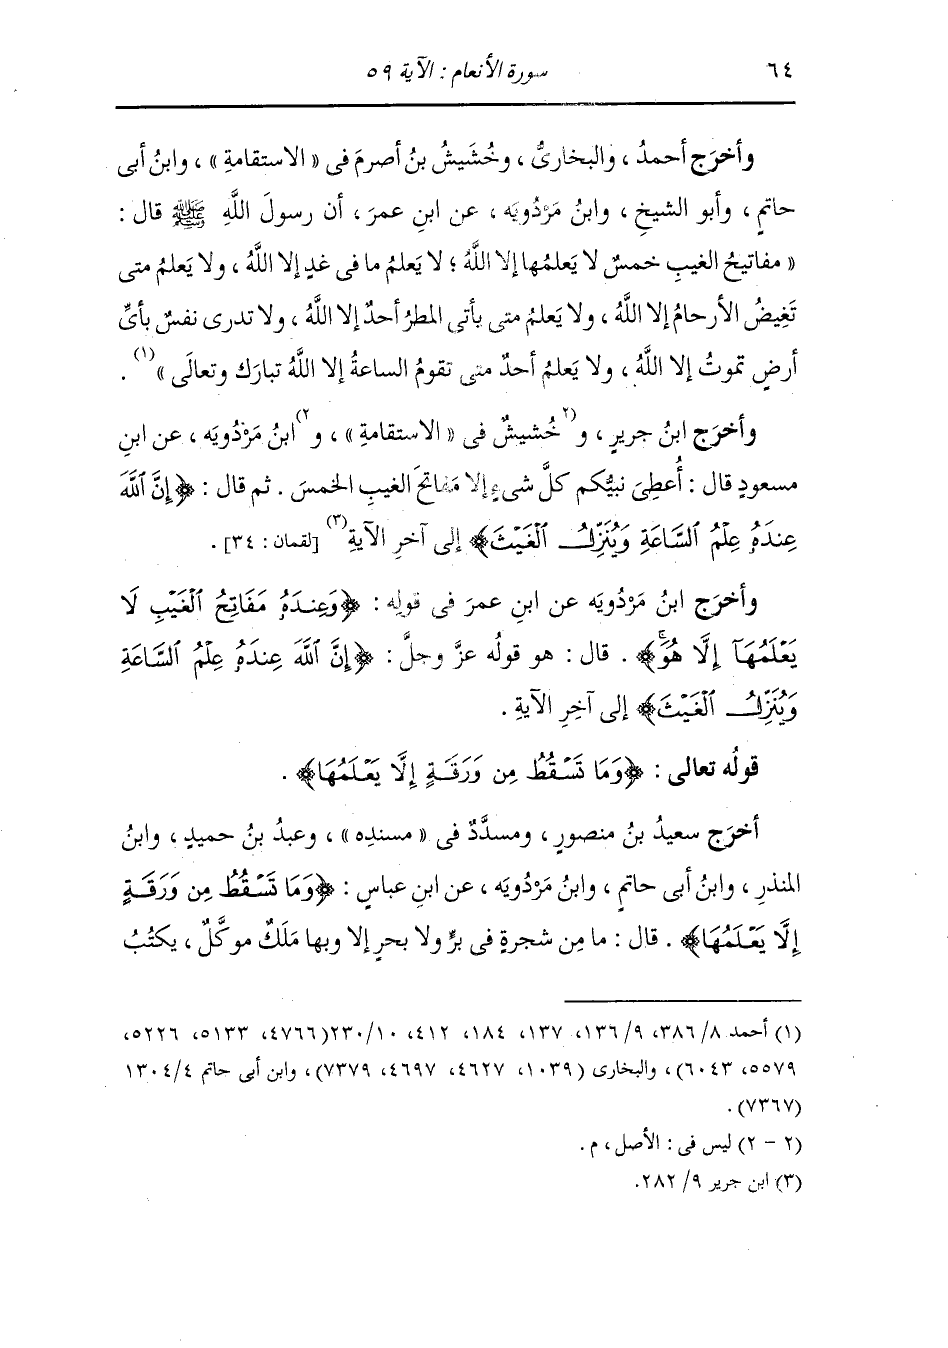 ٦٤ سورة الأنعام : الآية ٥٩
وأخرَج أحمدُ ، والبخارىُّ ، وخُشَيشُ بنُ أصرمَ فى « الاستقامةِ » ، وابنُ أبى
حاتمٍ ، وأبو الشيخِ ، وابنُ مَرْدُويَه ، عن ابنِ عمرَ ، أن رسولَ اللَّهِ ﷺ قال :
« مفاتيحُ الغيبِ خمسٌ لا يَعلمُها إلا اللَّهُ ؛ لا يَعلمُ ما فى غدٍ إلا اللَّهُ ، ولا يَعلمُ متى
تَغِيضُ الأرحامُ إلا اللَّهُ ، ولا يَعلمُ متى يأتى المطرُ أحدٌ إلا اللَّهُ ، ولا تدرى نفسٌ بأىِّ
أرضٍ تموتُ إلا اللَّهُ ، ولا يَعلمُ أحدٌ متى تقومُ الساعةُ إلا اللَّهُ تبارَك وتعالَى »(١) .
وأخرَج ابنُ جريرٍ ، و(٢خُشيشٌ فى « الاستقامةِ » ، و٢)ابنُ مَرْدُويَه ، عن ابنِ
مسعودٍ قال : أُعطِىَ نبيُّكم كلَّ شىءٍ إلا مفاتحَ الغيبِ الخمسَ . ثم قال : ﴿إِنَّ ٱللَّهَ
عِندَهُۥ عِلْمُ ٱلسَّاعَةِ وَيُنَزِّلُ ٱلْغَيْثَ﴾ إلى آخرِ الآيةِ(٣) [لقمان : ٣٤] .
وأخرَج ابنُ مَرْدُويَه عن ابنِ عمرَ فى قولِه : ﴿وَعِندَهُۥ مَفَاتِحُ ٱلْغَيْبِ لَا
يَعْلَمُهَآ إِلَّا هُوَۚ﴾ . قال : هو قولُه عزَّ وجلَّ : ﴿إِنَّ ٱللَّهَ عِندَهُۥ عِلْمُ ٱلسَّاعَةِ
وَيُنَزِّلُ ٱلْغَيْثَ﴾ إلى آخِرِ الآيةِ .
قولُه تعالى : ﴿وَمَا تَسْقُطُ مِن وَرَقَةٍ إِلَّا يَعْلَمُهَا﴾ .
أخرَج سعيدُ بنُ منصورٍ ، ومسدَّدٌ فى « مسندِه » ، وعبدُ بنُ حميدٍ ، وابنُ
المنذرِ ، وابنُ أبى حاتمٍ ، وابنُ مَرْدُويَه ، عن ابنِ عباسٍ : ﴿وَمَا تَسْقُطُ مِن وَرَقَةٍ
إِلَّا يَعْلَمُهَا﴾ . قال : ما مِن شجرةٍ فى برٍّ ولا بحرٍ إلا وبها مَلَكٌ موكَّلٌ ، يكتُبُ
(١) أحمد ٨/ ٣٨٦، ٩/ ١٣٦، ١٣٧، ١٨٤، ٤١٢، ١٠/ ٢٣٠(٤٧٦٦، ٥١٣٣، ٥٢٢٦،
٥٥٧٩، ٦٠٤٣)، والبخارى (١٠٣٩، ٤٦٢٧، ٤٦٩٧، ٧٣٧٩)، وابن أبى حاتم ٤/ ١٣٠٤
(٧٣٦٧).
(٢ - ٢) ليس فى : الأصل، م .
(٣) ابن جرير ٩/ ٢٨٢.